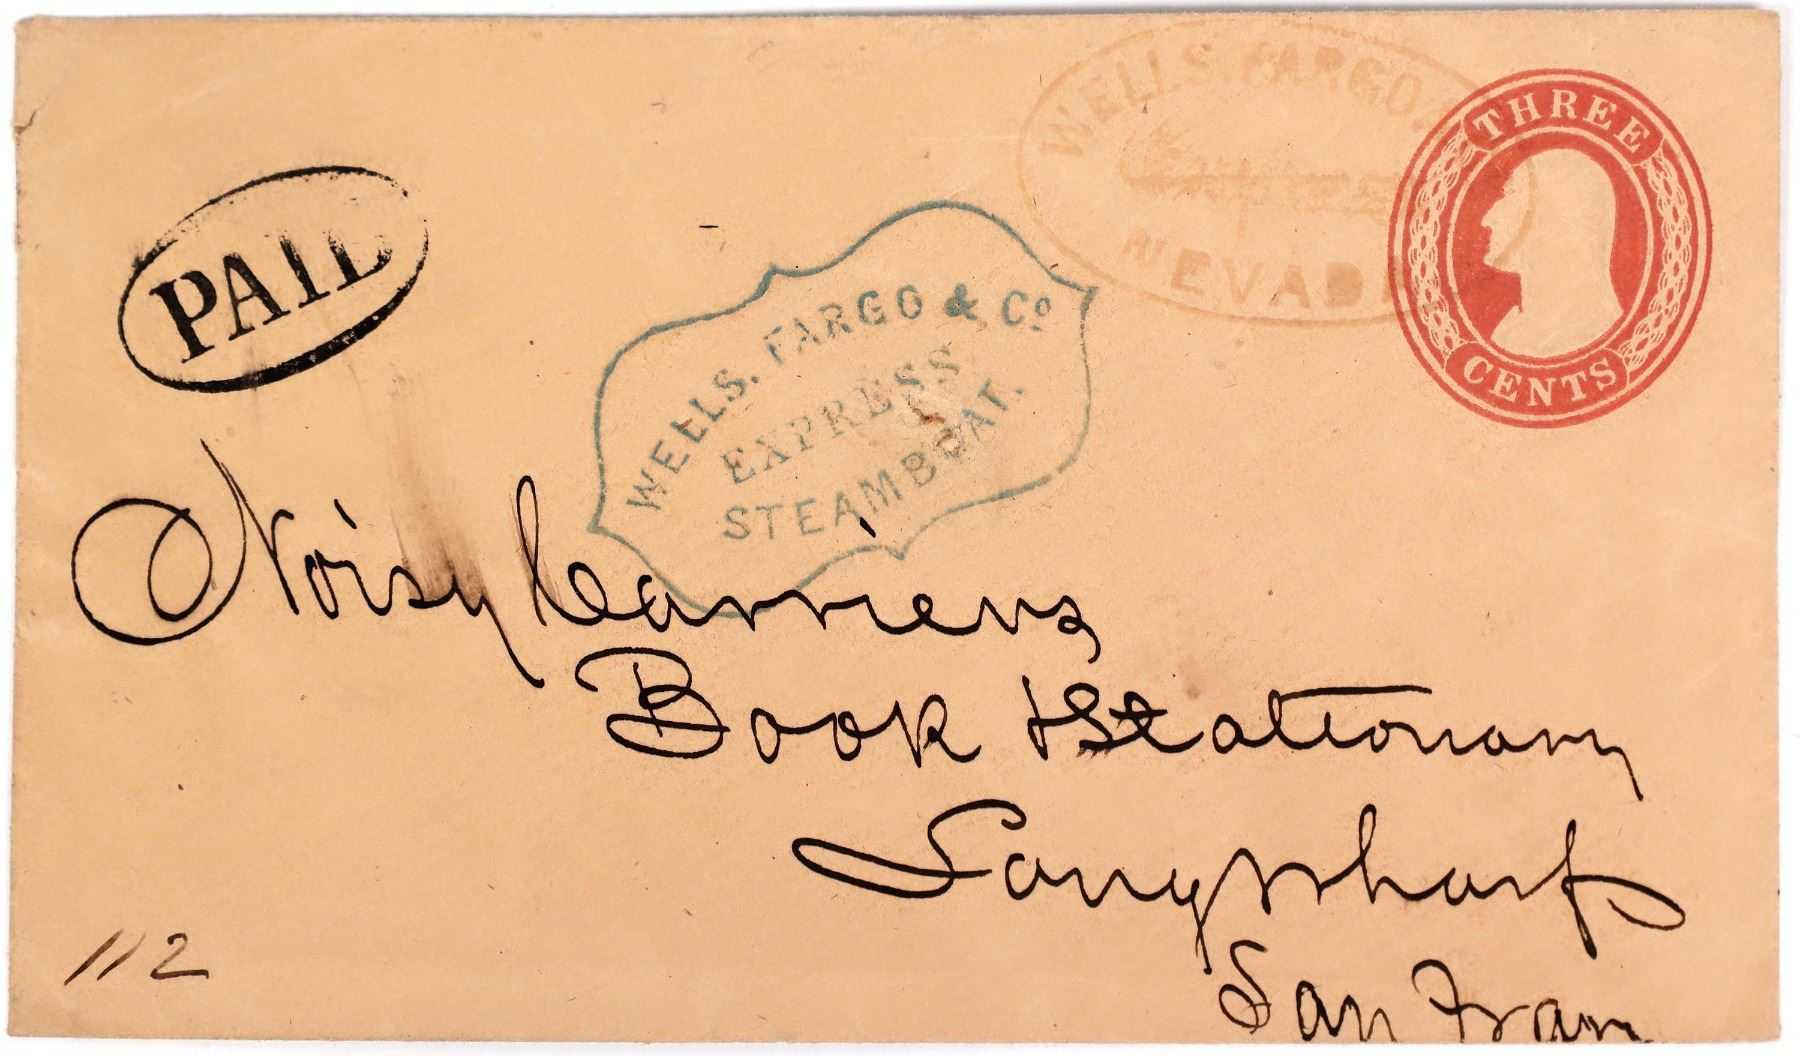 WELLS. FARGO.
NEVADA
THREE
CENTS
PAID
WELLS. FARGO & Co
EXPRESS
STEAMBOAT.
Noisy Carriers
Book & Stationary
Long Wharf
San Fran
112